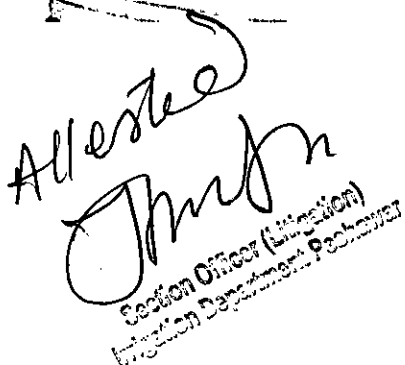 Attested
Section Officer (Litigation)
Irrigation Department Peshawar